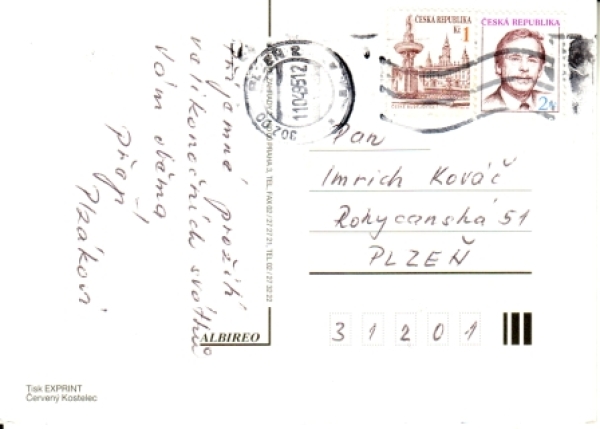 Příjemné prožití
velikonočních svátků
Vám oběma
přejí
Plzákovi
PLZEŇ 2
11.04.95 12
302 00
ČESKÁ REPUBLIKA
Kč 1
ČESKÁ REPUBLIKA
2
Pan
Imrich Kováč
Rokycanská 51
PLZEŇ
31201
PRAHA 3, TEL., FAX 02 / 27 27 21, TEL 02 / 27 32 22
ALBIREO
Tisk EXPRINT
Červený Kostelec